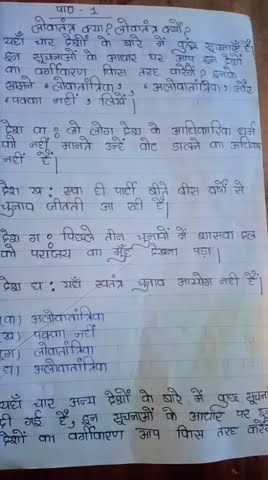 पाठ - 1
लोकतंत्र क्या? लोकतंत्र क्यों?
यहाँ चार देशों के बारे में कुछ सूचनाएँ हैं
इन सूचनाओं के आधार पर आप इन देशों
का वर्गीकरण किस तरह करेंगे? इनके
सामने 'लोकतांत्रिक', 'अलोकतांत्रिक' और
'पक्का नहीं', लिखें।
देश क : जो लोग देश के आधिकारिक धर्म
को नहीं मानते उन्हें वोट डालने का अधिकार
नहीं है।
देश ख : एक ही पार्टी बीते बीस वर्षों से
चुनाव जीतती आ रही है।
देश ग : पिछले तीन चुनावों में शासक दल
को पराजय का मुँह देखना पड़ा।
देश घ : यहाँ स्वतंत्र चुनाव आयोग नहीं है।
(क) अलोकतांत्रिक
(ख) पक्का नहीं
(ग) लोकतांत्रिक
(घ) अलोकतांत्रिक
यहाँ चार अन्य देशों के बारे में कुछ सूचना
दी गई है, इन सूचनाओं के आधार पर इन
देशों का वर्गीकरण आप किस तरह करेंगे